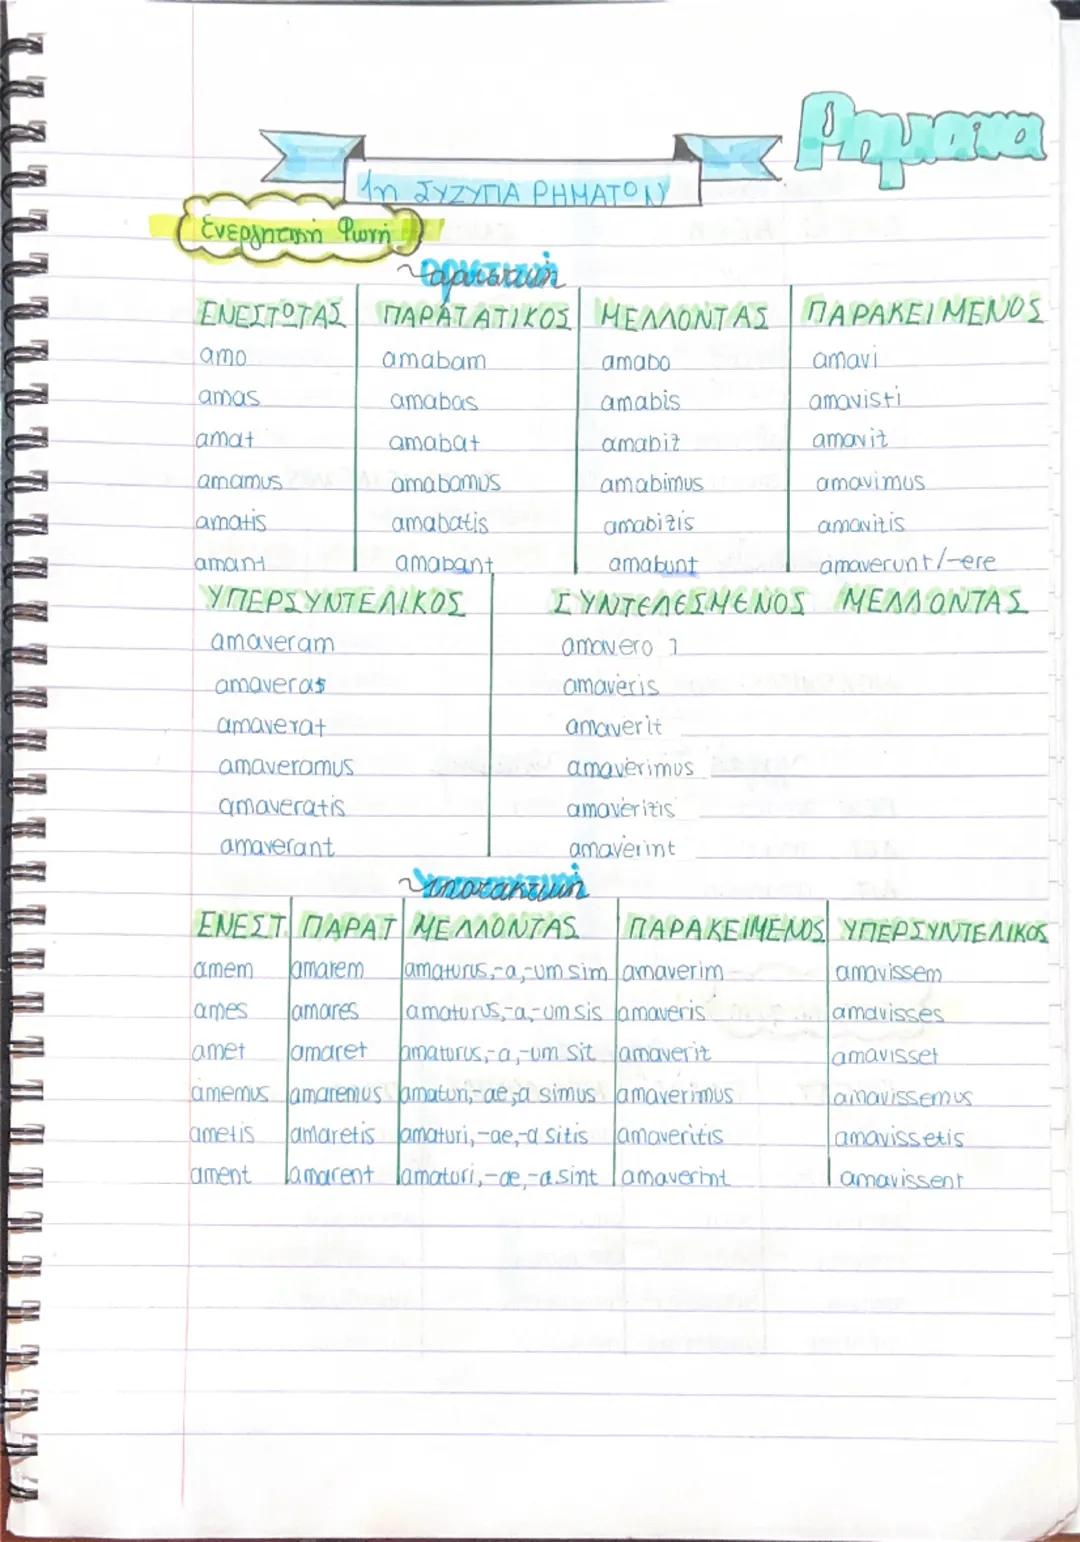 Ρήματα
1η ΣΥΖΥΓΙΑ ΡΗΜΑΤΩΝ
Ενεργητική Φωνή
Οριστική
ΕΝΕΣΤΩΤΑΣ ΠΑΡΑΤΑΤΙΚΟΣ ΜΕΛΛΟΝΤΑΣ ΠΑΡΑΚΕΙΜΕΝΟΣ
amo amabam amabo amavi
amas amabas amabis amavisti
amat amabat amabit amavit
amamus amabamus amabimus amavimus
amatis amabatis amabitis amavitis
amant amabant amabunt amaverunt/-ere
ΥΠΕΡΣΥΝΤΕΛΙΚΟΣ ΣΥΝΤΕΛΕΣΜΕΝΟΣ ΜΕΛΛΟΝΤΑΣ
amaveram amavero
amaveras amaveris
amaverat amaverit
amaveramus amaverimus
amaveratis amaveritis
amaverant amaverint
Υποτακτική
ΕΝΕΣΤ. ΠΑΡΑΤ ΜΕΛΛΟΝΤΑΣ ΠΑΡΑΚΕΙΜΕΝΟΣ ΥΠΕΡΣΥΝΤΕΛΙΚΟΣ
amem amarem amaturus,-a,-um sim amaverim amavissem
ames amares amaturus,-a,-um sis amaveris amavisses
amet amaret amaturus,-a,-um sit amaverit amavisset
amemus amaremus amaturi,-ae,-a simus amaverimus amavissemus
ametis amaretis amaturi,-ae,-a sitis amaveritis amavissetis
ament amarent amaturi,-ae,-a sint amaverint amavissent